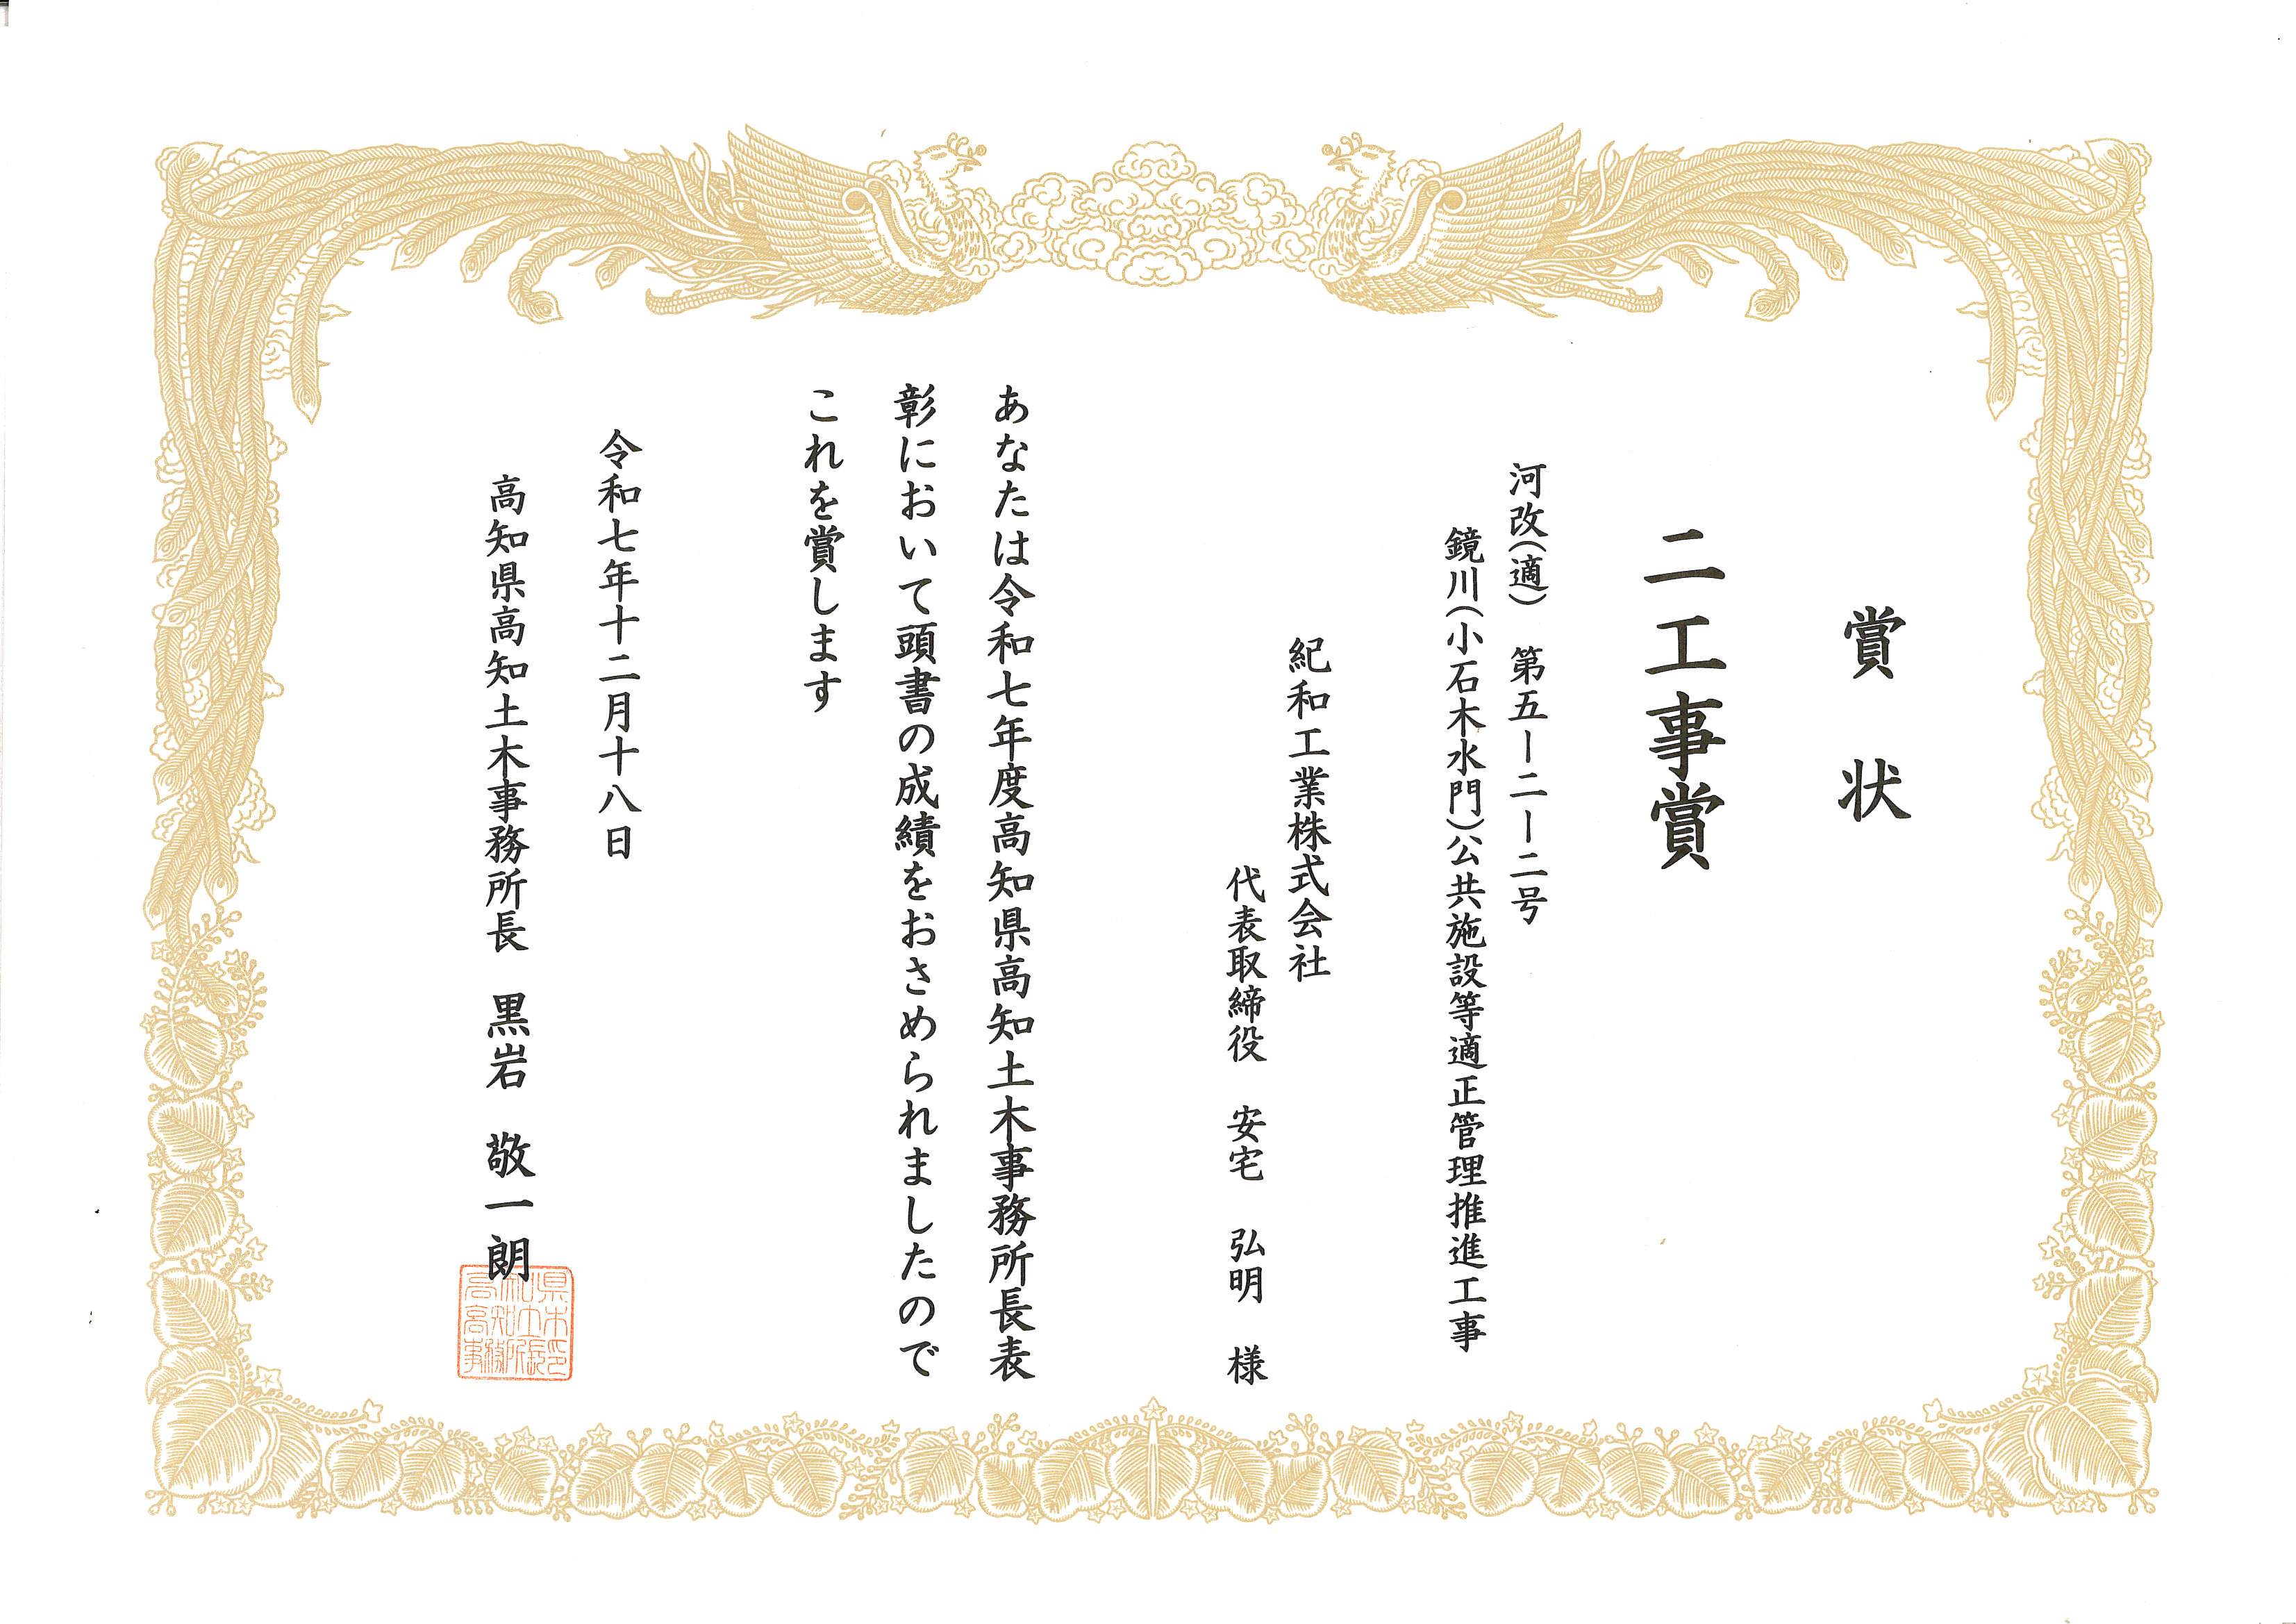 賞状
二工事賞
河改(適) 第五ー二ー二号
鏡川(小石木水門)公共施設等適正管理推進工事
紀和工業株式会社
代表取締役 安宅 弘明 様
あなたは令和七年度高知県高知土木事務所長表
彰において頭書の成績をおさめられましたので
これを賞します
令和七年十二月十八日
高知県高知土木事務所長 黒岩 敬一朗